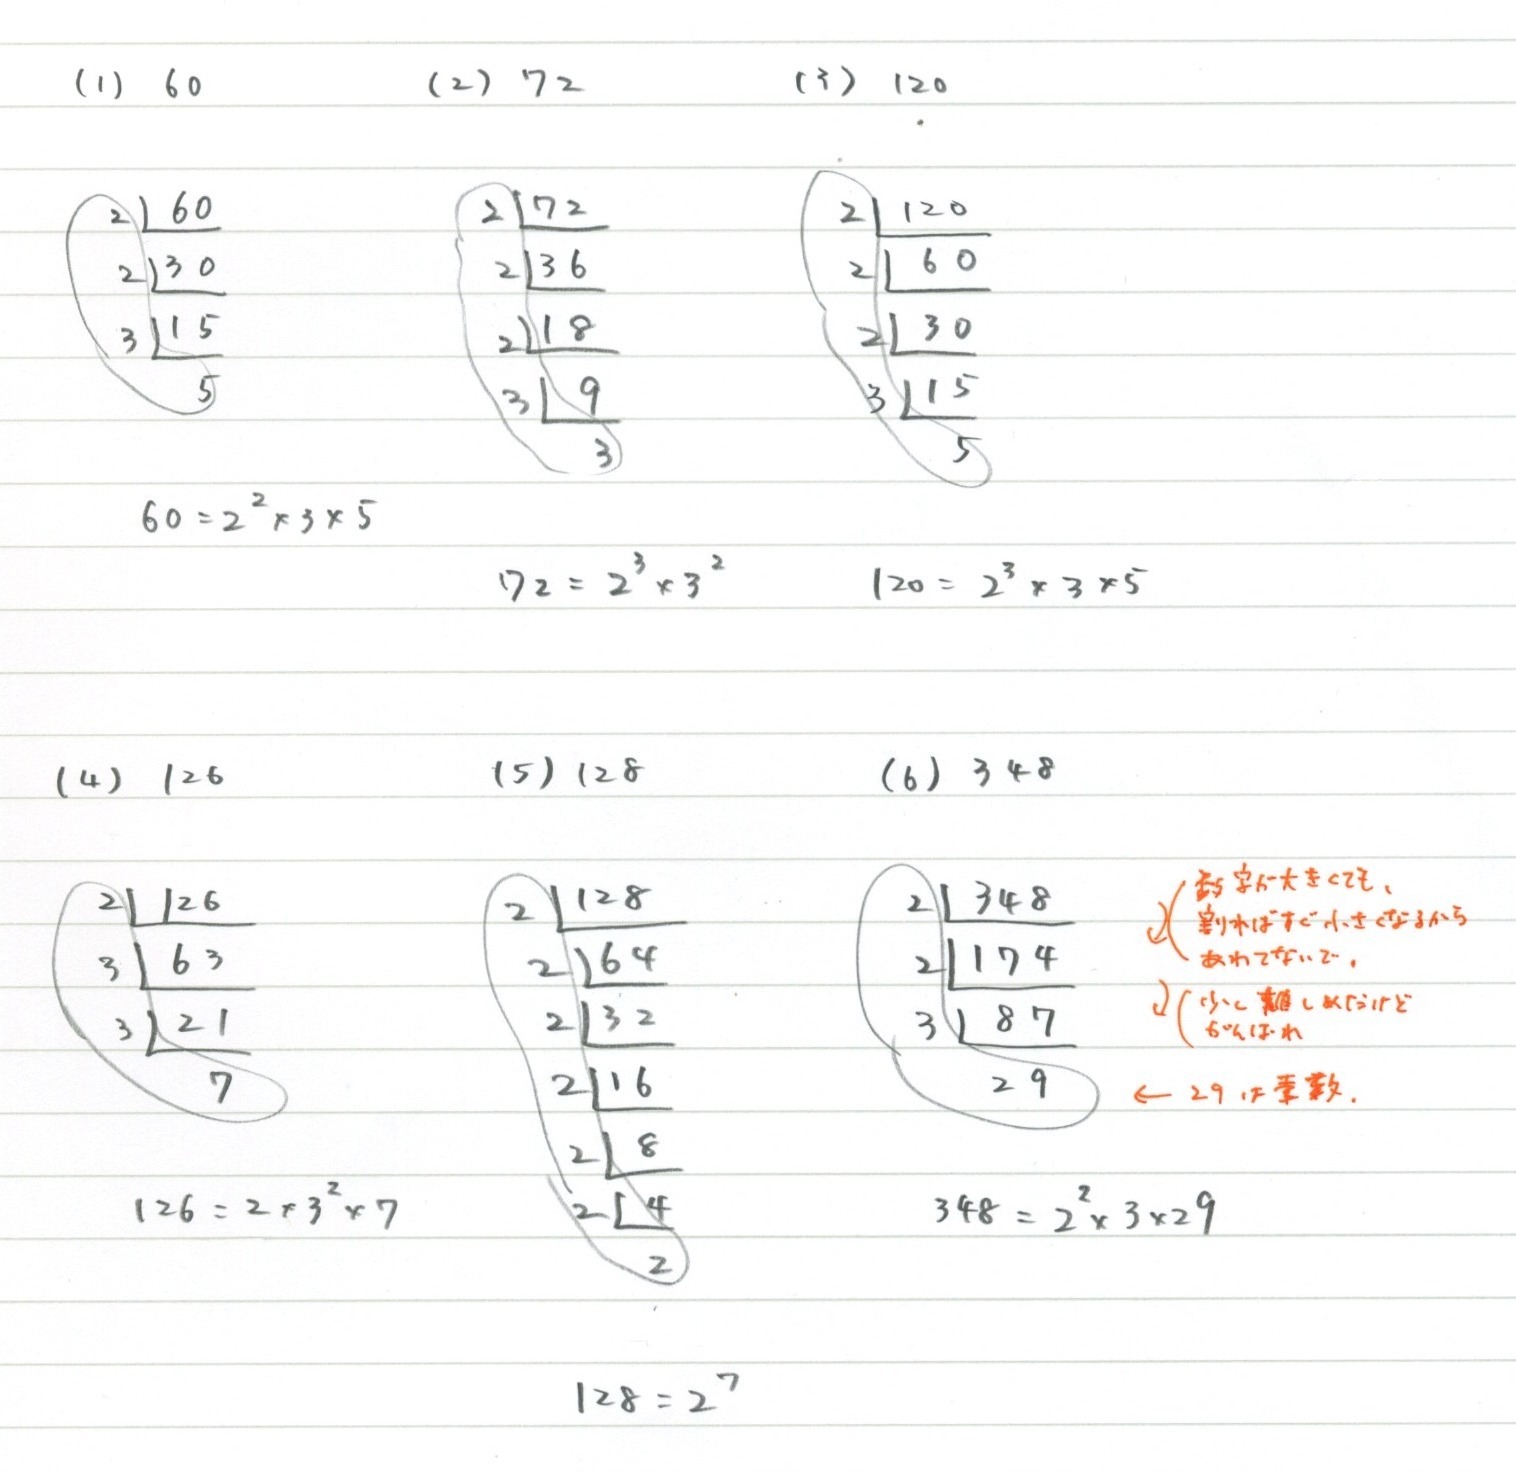 (1) 60
2 60
2 30
3 15
5
60 = 2² × 3 × 5
(2) 72
2 72
2 36
2 18
3 9
3
72 = 2³ × 3²
(3) 120
2 120
2 60
2 30
3 15
5
120 = 2³ × 3 × 5
(4) 126
2 126
3 63
3 21
7
126 = 2 × 3² × 7
(5) 128
2 128
2 64
2 32
2 16
2 8
2 4
2
128 = 2⁷
(6) 348
2 348
2 174
3 87
29
348 = 2² × 3 × 29
数字が大きくても、
割ればすぐ小さくなるから
あわてないで。
少し難しめだけど
がんばれ
← 29は素数.